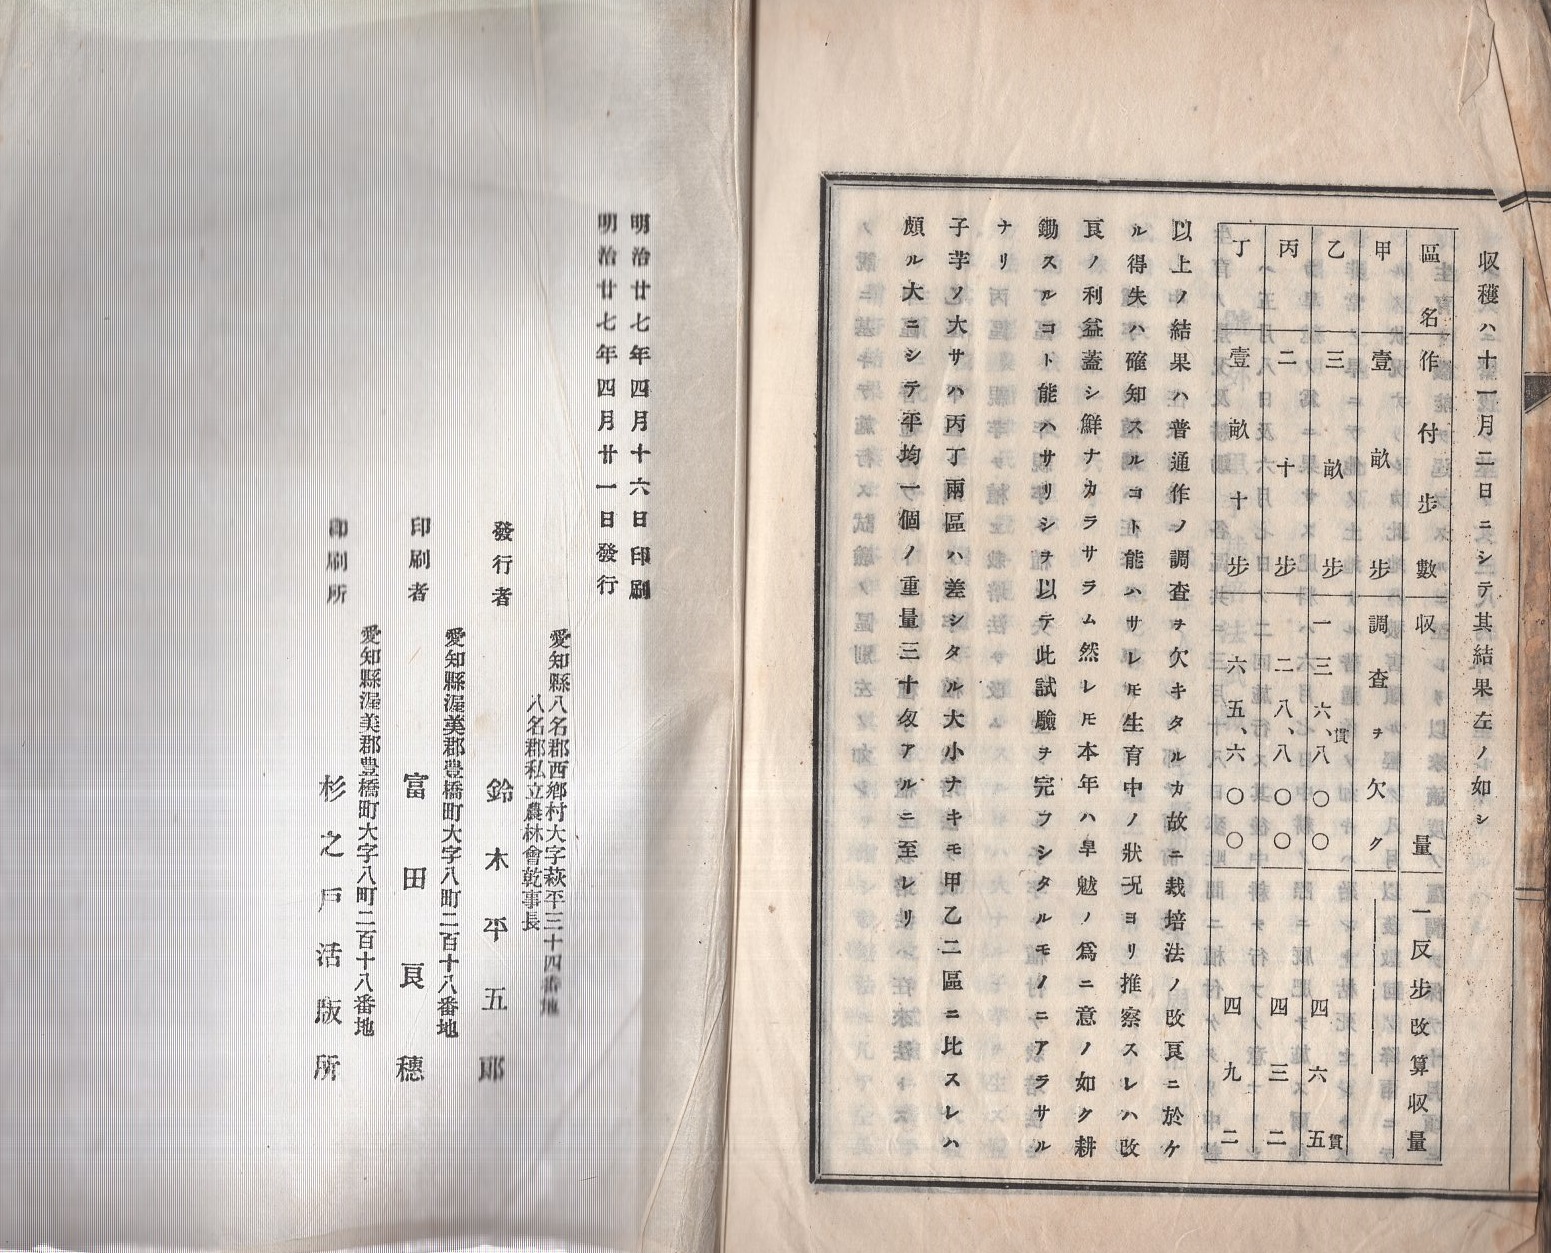 収穫ハ十一月二日ニシテ其結果左ノ如シ
區名 作付歩數 収量 一反歩改算収量
甲 壹畝歩 調査ヲ欠ク
乙 三畝歩 一三六、八〇〇貫 四六五貫
丙 二十歩 二八、八〇〇 四三二
丁 壹畝十歩 六五、六〇〇 四九二
以上ノ結果ハ普通作ノ調査ヲ欠キタルカ故ニ栽培法ノ改良ニ於ケ
ル得失ハ確知スルコト能ハサレ𪜈生育中ノ狀況ヨリ推察スレハ改
良ノ利益蓋シ鮮ナカラサラム然レ𪜈本年ハ旱魃ノ爲ニ意ノ如ク耕
鋤スルコト能ハサリシヲ以テ此試驗ヲ完フシタルモノニアラサル
ナリ
子芋ノ大サハ丙丁兩區ハ差シタル大小ナキモ甲乙二區ニ比スレハ
頗ル大ニシテ平均一個ノ重量三十匁アルニ至レリ
明治廿七年四月十六日印刷
明治廿七年四月廿一日發行
愛知縣八名郡西鄕村大字萩平三十四番地
八名郡私立農林會乾事長
發行者 鈴木平五郎
愛知縣渥美郡豊橋町大字八町二百十八番地
印刷者 富田良穗
愛知縣渥美郡豊橋町大字八町二百十八番地
印刷所 杉之戸活版所